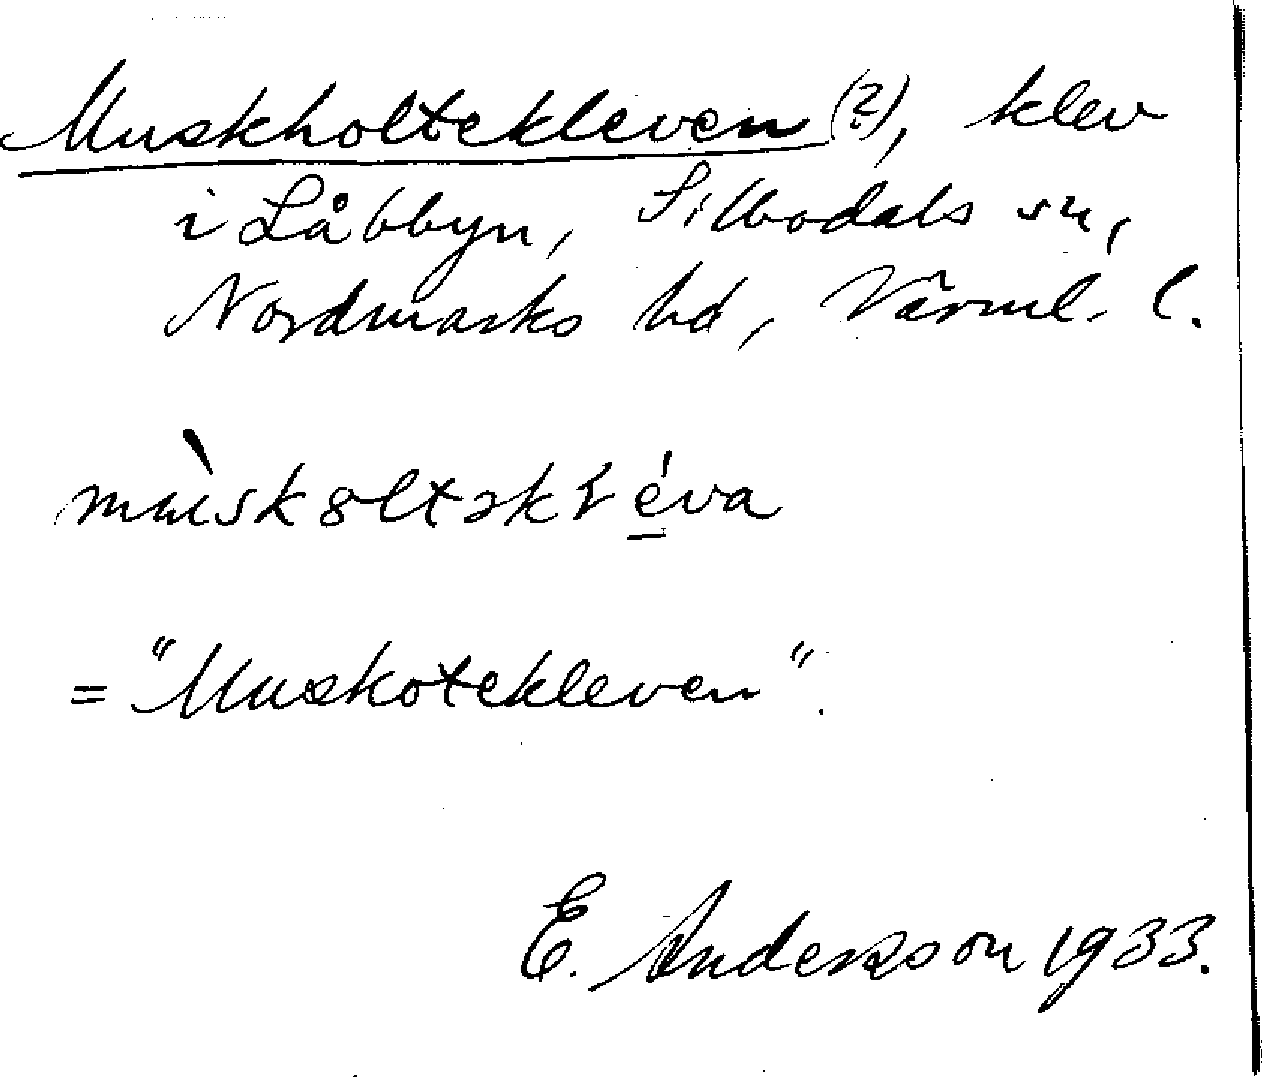 Muskholtekleven (?), klev
i Låbbyn, Silbodals sn,
Nordmarks hd, Värml. l.
= "Muskotekleven".
E. Andersson 1933.